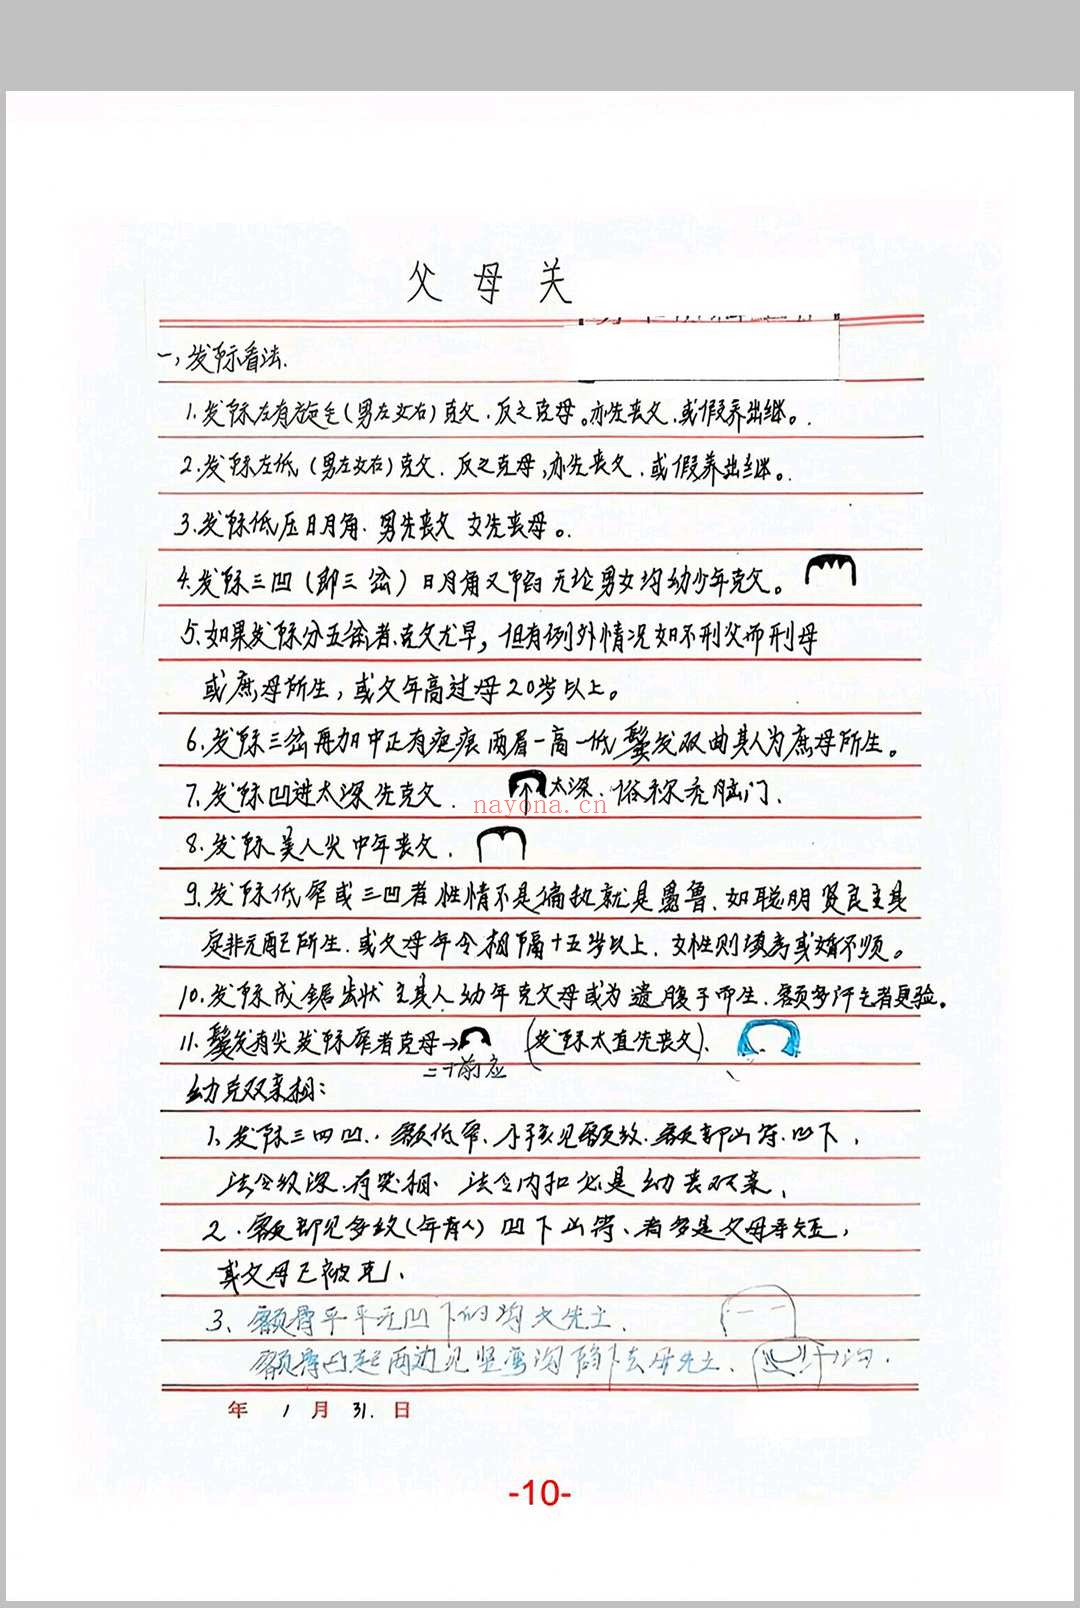 父母关
一,发际看法.
1.发际左有旋毛(男左女右)克父.反之克母。亦先丧父.或假养出继。.
2.发际左低(男左女右)克父.反之克母,亦先丧父.或假养出继。.
3.发际低压日月角.男先丧父 女先丧母。.
4.发际三凹(即三岔)日月角又下陷 无论男女均幼少年克父。
5.如果发际分五岔者.克父尤早,但有例外情况如不刑父而刑母
或庶母所生,或父年高过母20岁以上。
6.发际三岔再加中正有疤痕 两眉一高一低 鬓发双曲其人为庶母所生。
7.发际凹进太深先克父. 太深.俗称秃脑门.
nayona.cn
8.发际美人尖中年丧父.
9.发际低窄或三凹者 性情不是偏执就是愚鲁.如聪明贤良主其
定非元配所生.或父母年令相隔十五岁以上.女性则填房或婚不顺。
10.发际成锯齿状 主其人幼年克父母或为遗腹子而生.额多汗毛者更验。
11.鬓发有尖发际窄者克母→ (发际太直先丧父).
二十前应
幼克双亲相:
1、发际三四凹.额低窄.小孩见额纹.额部出筋.凹下,
法令纹深.有哭相. 法令内扣必是幼丧双亲.
2.额部见多纹(年青人)凹下出筋、者多是父母寿短,
或父母已被克.
3、额骨平平无凹下的沟父先亡.
额骨凸起两边见竖弯沟陷下去母先亡. →沟.
年 1 月 31. 日
-10-